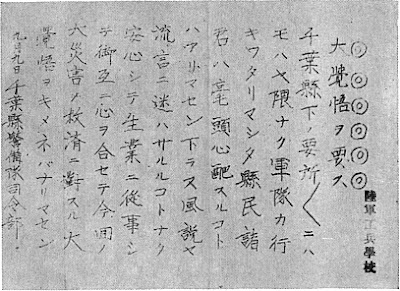 陸軍工兵學校
◎◎◎◎◎◎
大覺悟ヲ要ス
千葉縣下ノ要所〱ニハ
モハヤ隈ナク軍隊カ行
キワタリマシタ縣民諸
君ハ毫頭心配スルコト
ハアリマセン下ラヌ風說ヤ
流言ニ迷ハサルルコトナク
安心シテ生業ニ從事シ
テ御互ニ心ヲ合セテ今囘
大災害ノ救濟ニ對スル大
覺悟ヲキメネバナリマセン
九月九日 千葉縣警備隊司令部